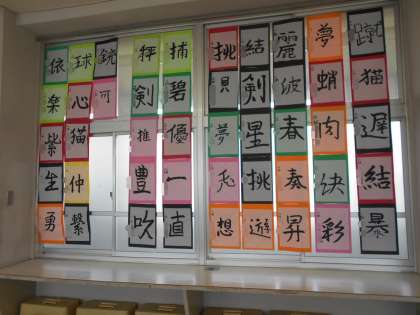 依 球 銃 秤 捕 挑 結 麗 夢 蹴
楽 心 可 剣 碧 貝 剣 波 蛸 猫
紫 猫 推 優 夢 星 春 肉 遅
生 仲 豊 一 挑 奏 決 結
勇 繋 吹 直 想 遊 昇 彩 暴